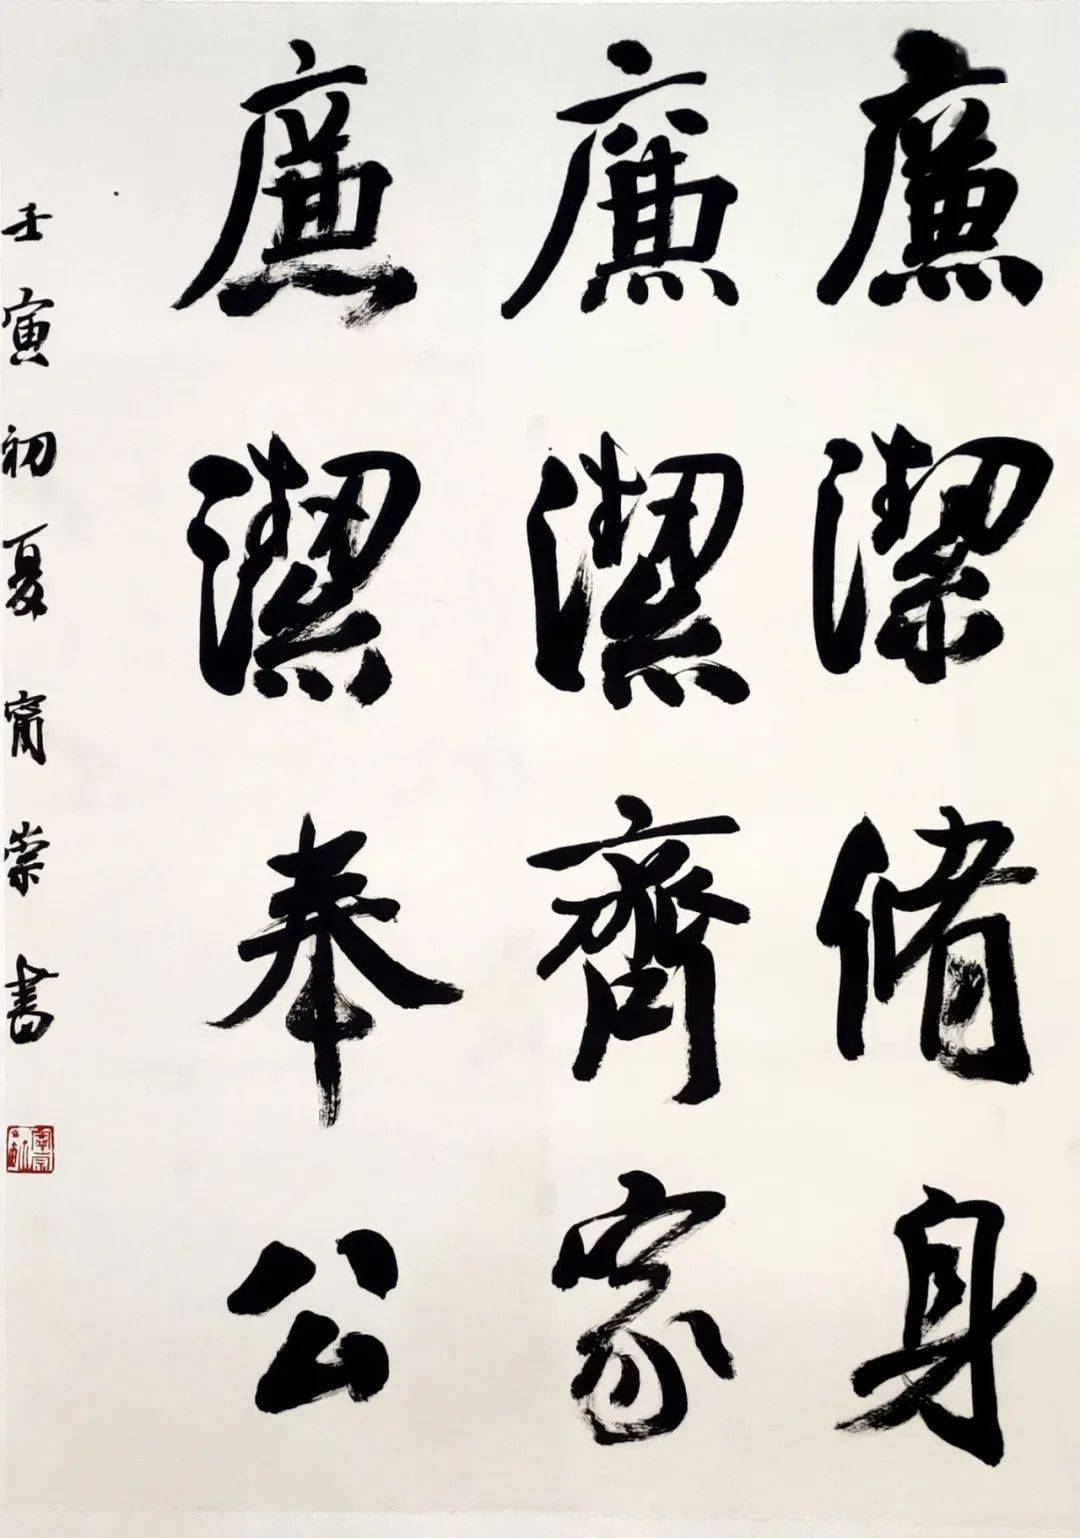 廉潔脩身
廉潔齊家
廉潔奉公
壬寅初夏甯崇書